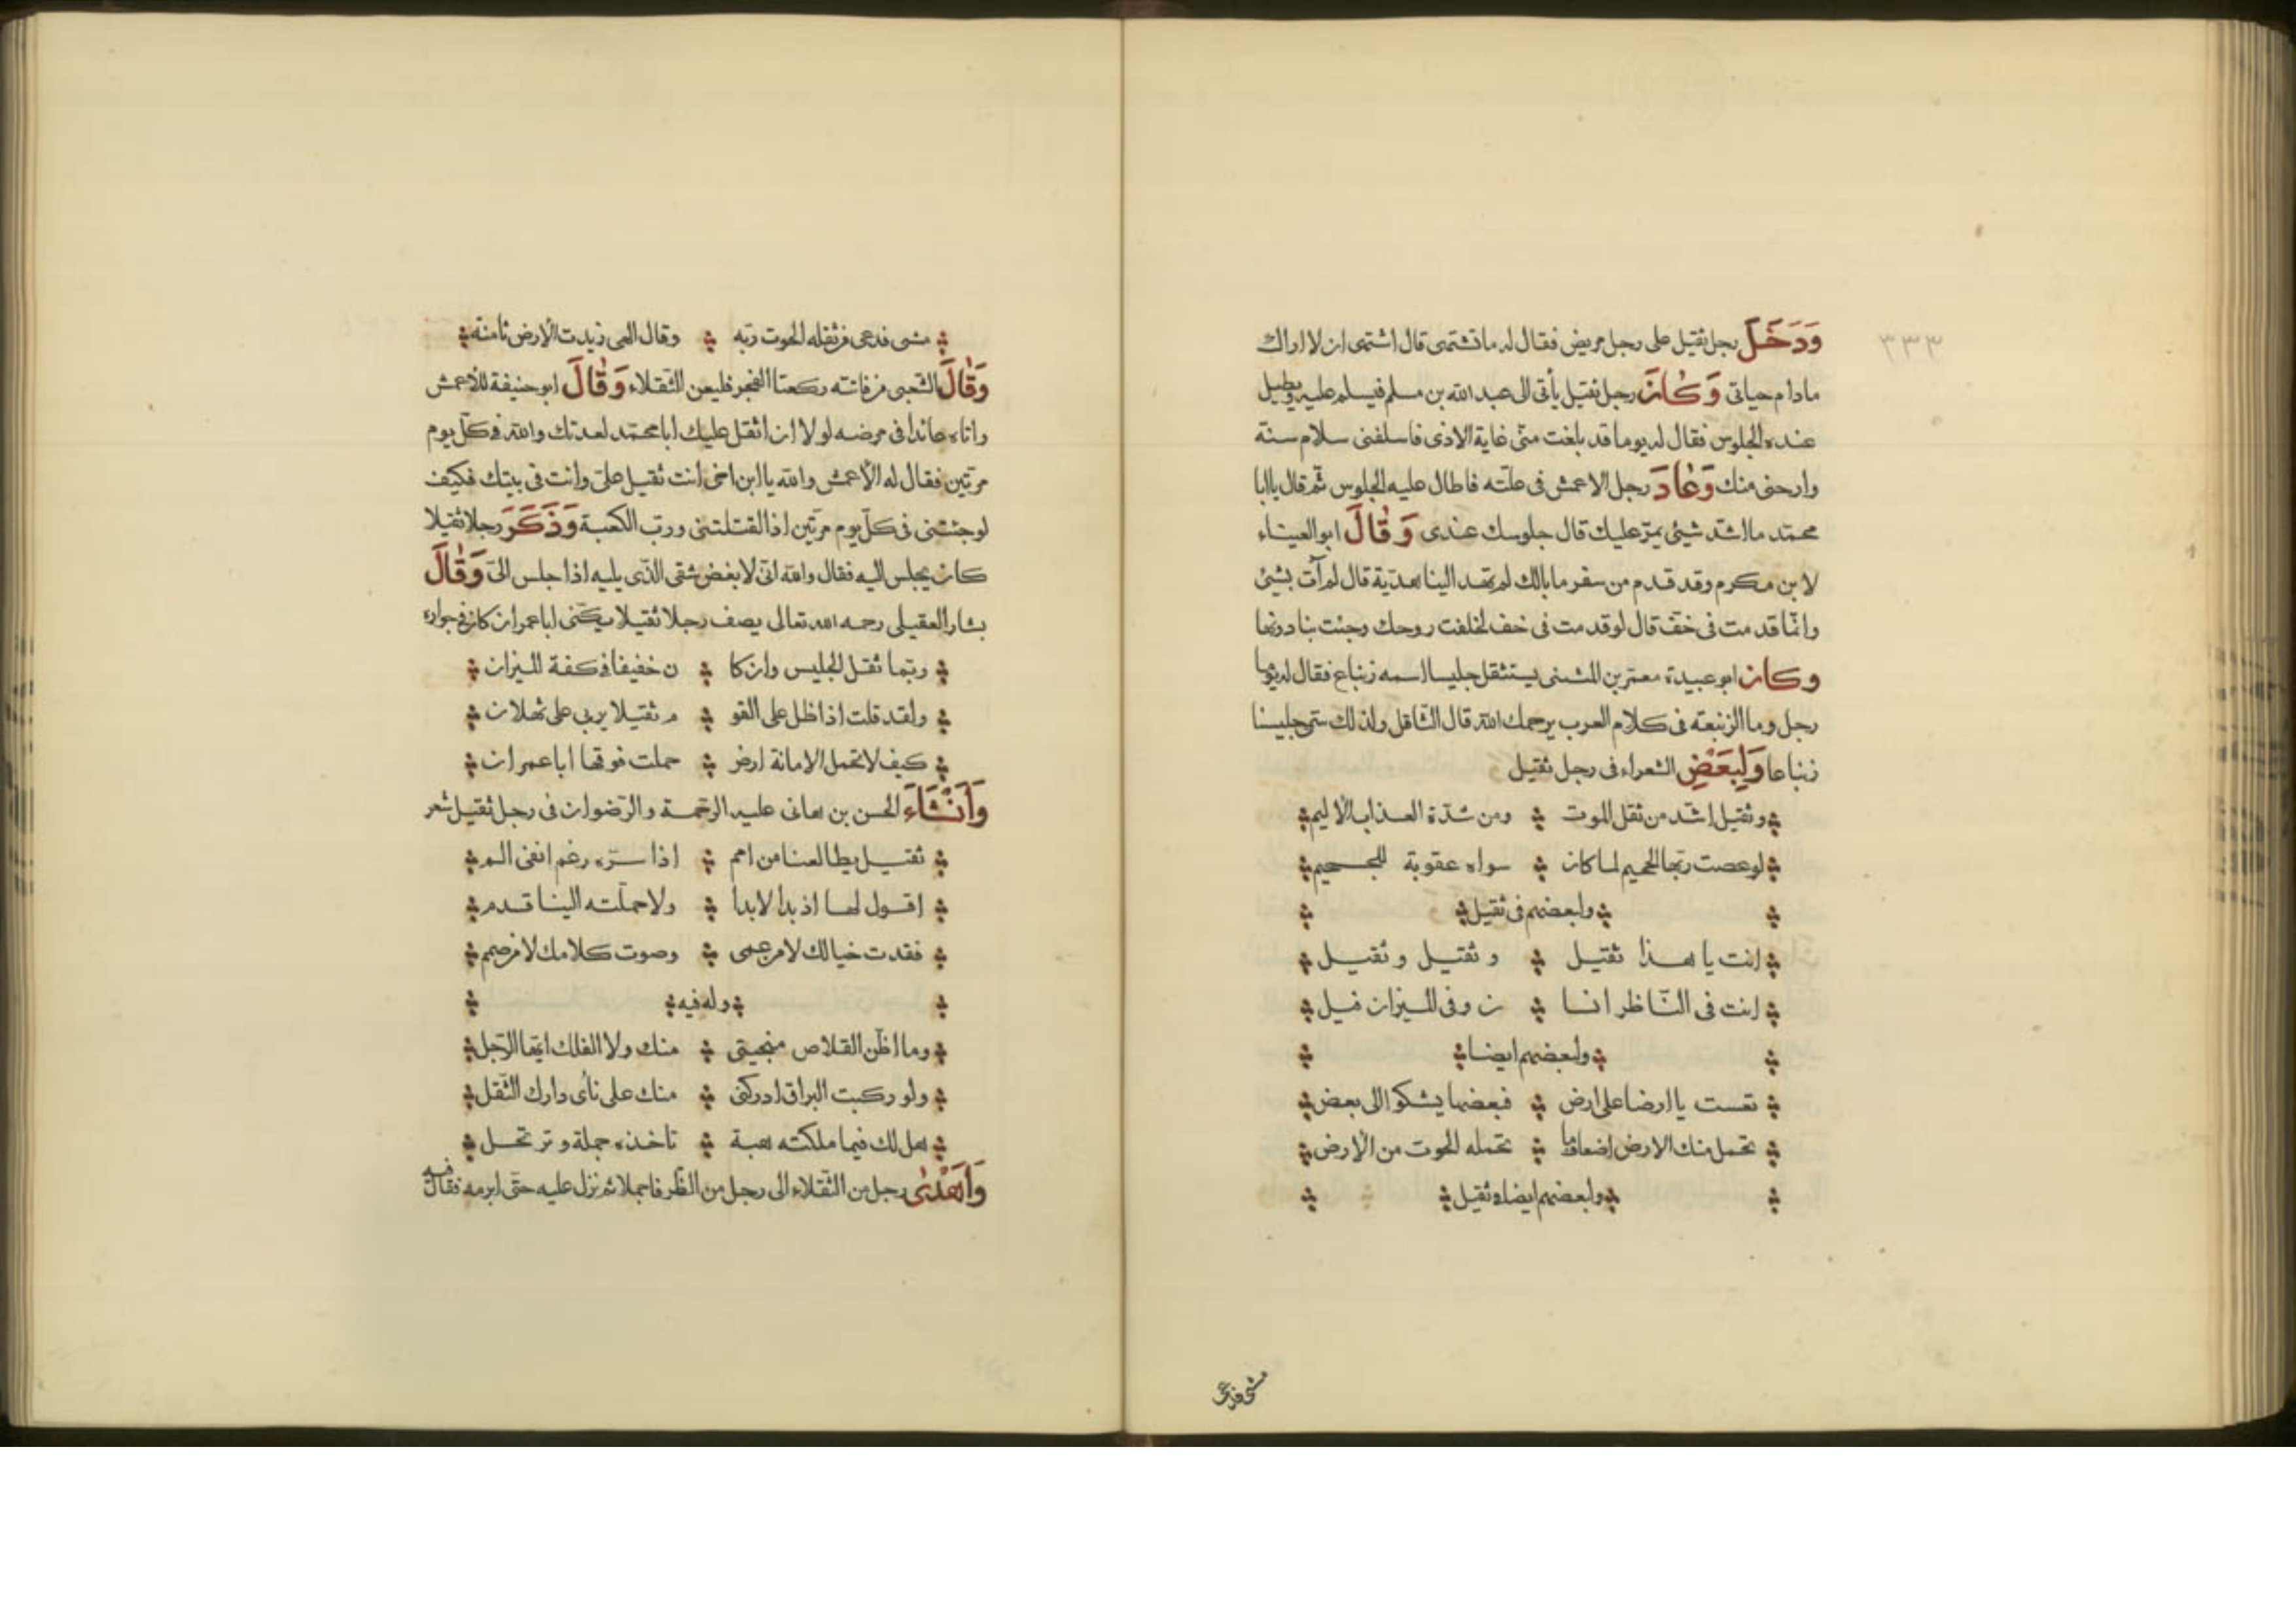 ٣٣٣
وَدَخَلَ رجل ثقيل على رجل مريض فقال له ما تشتهى قال اشتهى ان لا اراك
مادام حياتى وَكَانَ رجل ثقيل يأتى الى عبد الله بن مسلم فيسلم عليه ويطيل
عنده الجلوس فقال له يوما قد بلغت منّى غاية الاذى فاسلفنى سلام سنة
وارحنى منك وَعَادَ رجل الاعمش فى علّته فاطال عليه الجلوس ثم قال يا ابا
محمّد ما اشّد شيئ يمرّ عليك قال جلوسك عندى وَقَالَ ابو العيناء
لابن مكرم وقد قدم من سفر ما بالك لم تهد الينا هديّة قال لم آت بشيئ
وانّما قدمت فى خفّ قال لو قدمت فى خف لخلفت روحك وجئت بنادونها
وكان ابو عبيدة معمر بن المثنى يستثقل جليسا اسمه زنباع فقال له يوما
رجل وما الزنبعته فى كلام العرب يرحمك الله قال التّثاقل ولذلك سمّى جليسنا
زنباعا وَلِبَعْضِ الشعراء فى رجل ثقيل
وثقيل اشّد من ثقل الموت ومن شدّة العذاب الأليم
لوعصت ربّها الجحيم لما كان سواه عقوبة للجحيم
ولبعضهم فى ثقيل
انت يا هذا ثقيل وثقيل وثقيل
انت فى النّاظر انسا ن وفى الميزان فيل
ولبعضهم ايضا
تعست يا ارضا على ارض فبعضها يشكو الى بعض
تحمل منك الارض اضعافما تحمله الحوت من الأرض
ولبعضهم ايضا فى ثقيل
مشى فدعى
مشى فدعى من ثقله الحوت ربّه وقال الهى زيدت الأرض ثامنة
وَقَالَ الشّعبى من فاتته ركعتا الفجر فليعن الثّقلاء وَقَالَ ابو حنيفة للأعمش
واتاه عائدا فى مرضه لولا ان اثقل عليك ابا محمّد لعدتك والله فى كلّ يوم
مرّتين فقال له الأعمش والله يا ابن اخى انت ثقيل علىّ وانت فى بيتك فكيف
لوجئتنى فى كلّ يوم مرّتين اذا لقتلتنى وربّ الكعبة وَذَكَرَ رجلا ثقيلا
كان يجلس اليه فقال والله انّى لابغض شقى الذّى يليه اذا جلس الىّ وَقَالَ
بشار العقيلى رحمه الله تعالى يصف رجلا ثقيلا يكنّى ابا عمران كان فى جواره
ربّما ثقل الجليس وان كا ن خفيفا فى كفة الميزان
ولقد قلت اذا ظل على القو م ثقيلا يربى على ثهلان
كيف لا تحمل الامانة ارض حملت فوقها ابا عمران
وَاَنْشَاَءَ الحسن بن هانى عليه الرّحمة والرّضوان فى رجل ثقيل شعر
ثقيل يطالعنا من امم اذا سرّه رغم انفى الم
اقول لها اذ بدا لابدا ولا حملته الينا قدم
فقدت خيالك لا من عمى وصوت كلامك لا من صمم
وله فيه
وما اظّن القلاص منجيتى منك ولا الفلك ايّها الرّجل
ولو ركبت البراق ادركنى منك على نأى دارك الثّقل
هل لك فيما ملكته هبة تاخذه جملة وترتحل
وَاَهْدٰى رجل من الثّقلاء الى رجل من الظّرفا جملا ثم نزل عليه حتّى ابرمه فقال فيه